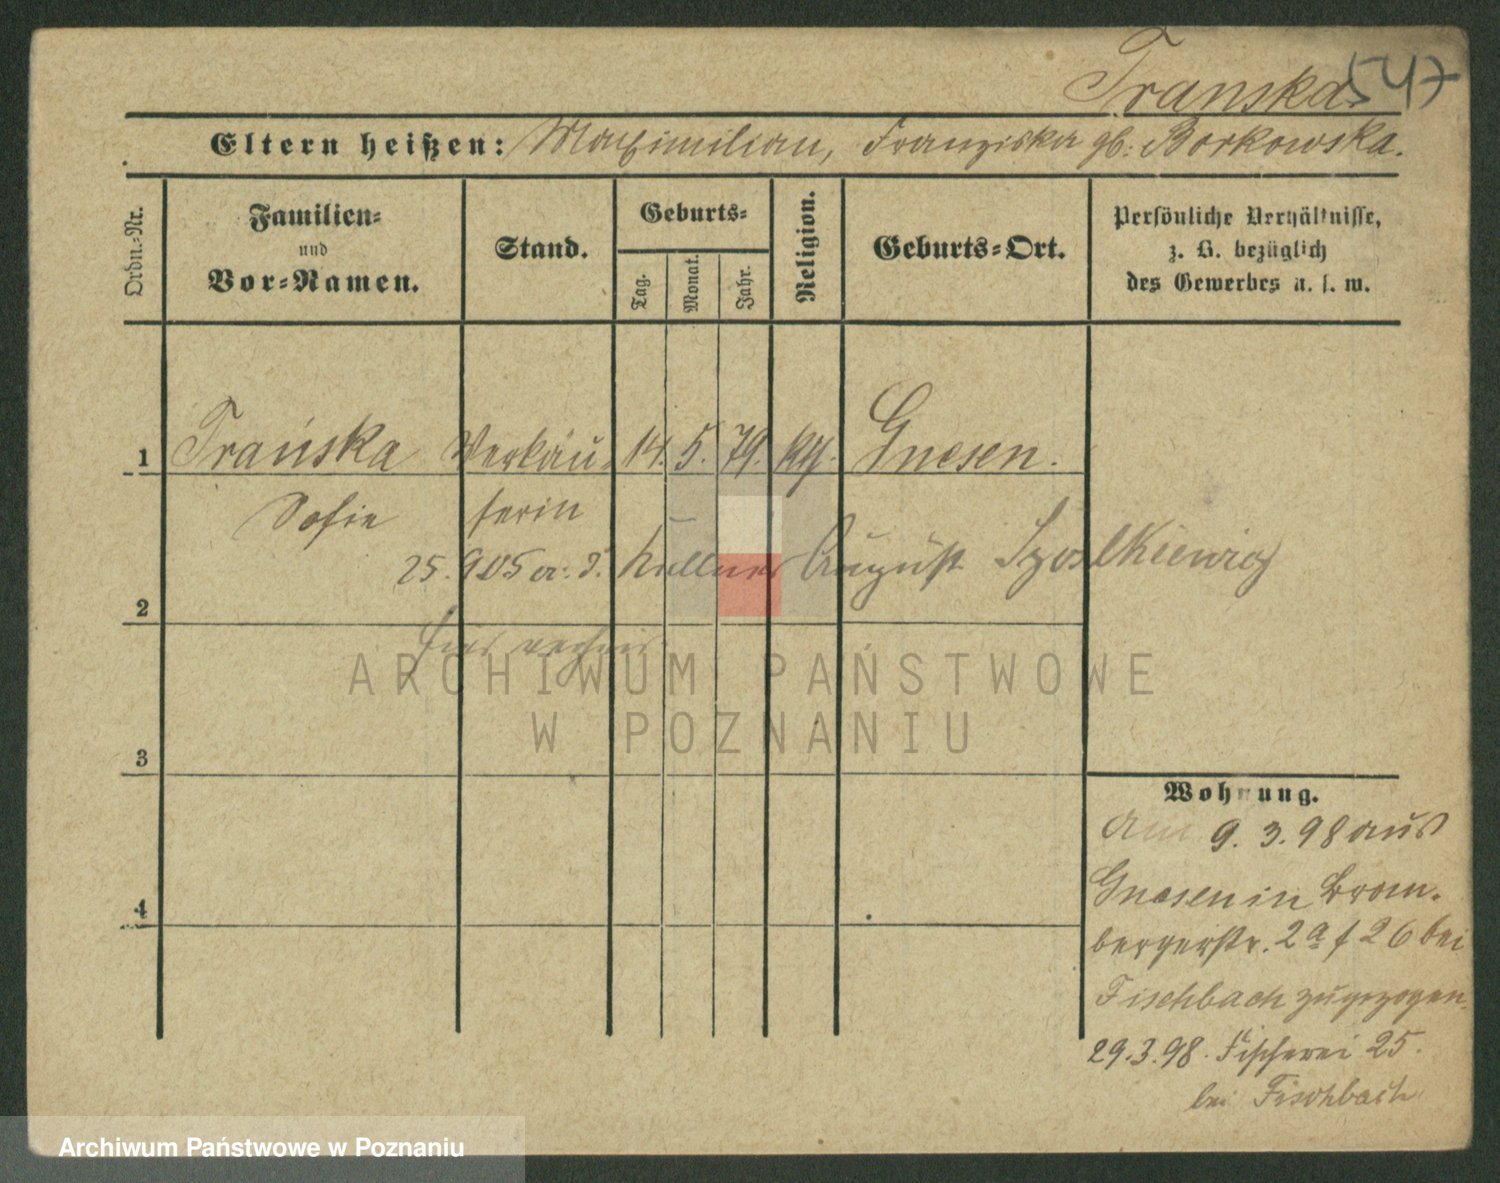 Transka 547
Eltern heißen: Maximilian, Franziska gb: Borkowska.
Ordn.-Nr.
Familien-
und
Vor-Namen.
Stand.
Geburts-
Tag.
Monat.
Jahr.
Religion.
Geburts-Ort.
Persönliche Verhältnisse,
z. B. bezüglich
des Gewerbes u. s. w.
1 Trańska Verkäu- 14. 5. 79. kth. Gnesen.
Sofie ferin
25. 9 05 a: d. Kellner August
2
3
4
ARCHIWUM PAŃSTWOWE
W POZNANIU
Wohnung.
Am 9. 3. 98 aus
Gnesen in Brom-
bergerstr. 2a f 26 bei
Fischbach zugezogen.
29. 3. 98. Fischerei 25.
bei Fischbach
Archiwum Państwowe w Poznaniu